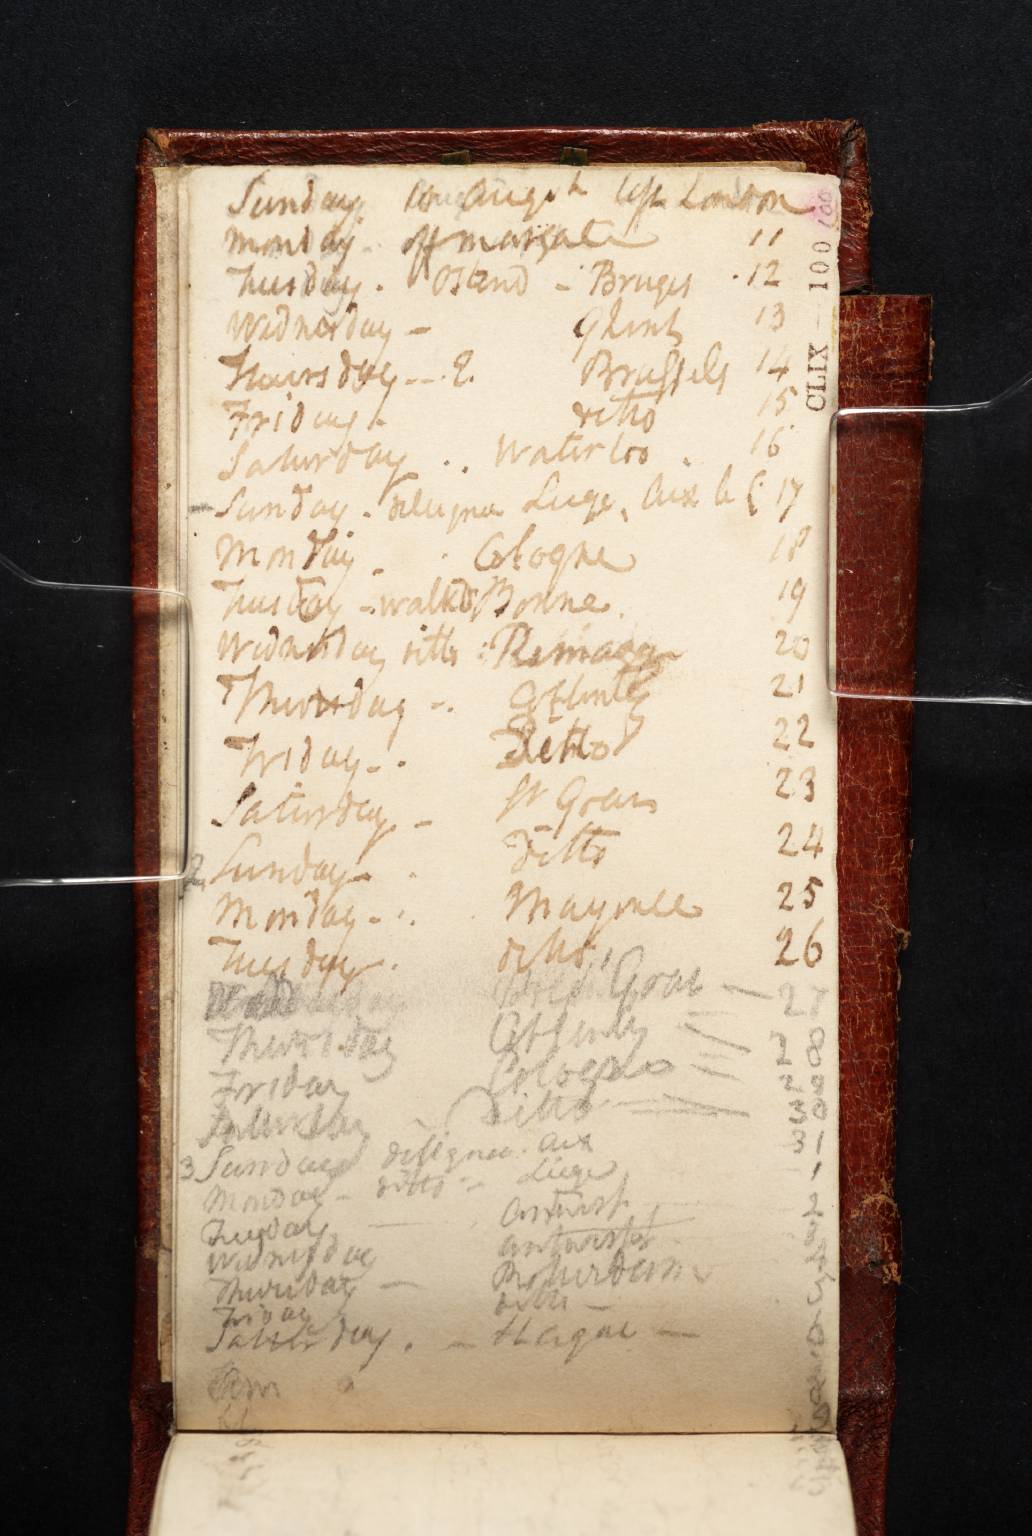 Sunday 10 August left London
Monday off Margate 11
Tuesday. Ostend - Bruges 12
Wednesday - Ghent 13
Thursday - Brussels 14
Friday ditto 15
Saturday .. Waterloo . 16
Sunday. Liege, Aix la C 17
Monday . Cologne 18
Tuesday - walkd Bonne. 19
Wednesday ditto Remagen 20
Thursday -. Coblentz 21
Friday - . Ditto 22
Saturday - St Goar 23
2 Sunday - . Ditto 24
Monday - . Mayence 25
Tuesday . ditto 26
Wednesday Goar - 27
Thursday Coblentz 28
Friday Cologne 29
Saturday Ditto 30
3 Sunday diligence Aix 31
Monday - ditto - Liege 1
Tuesday Antwerp 2
Wednesday Antwerp
Thursday - Rotterdam
Friday ditto -
Saturday . - Hague -
CLIX - 100